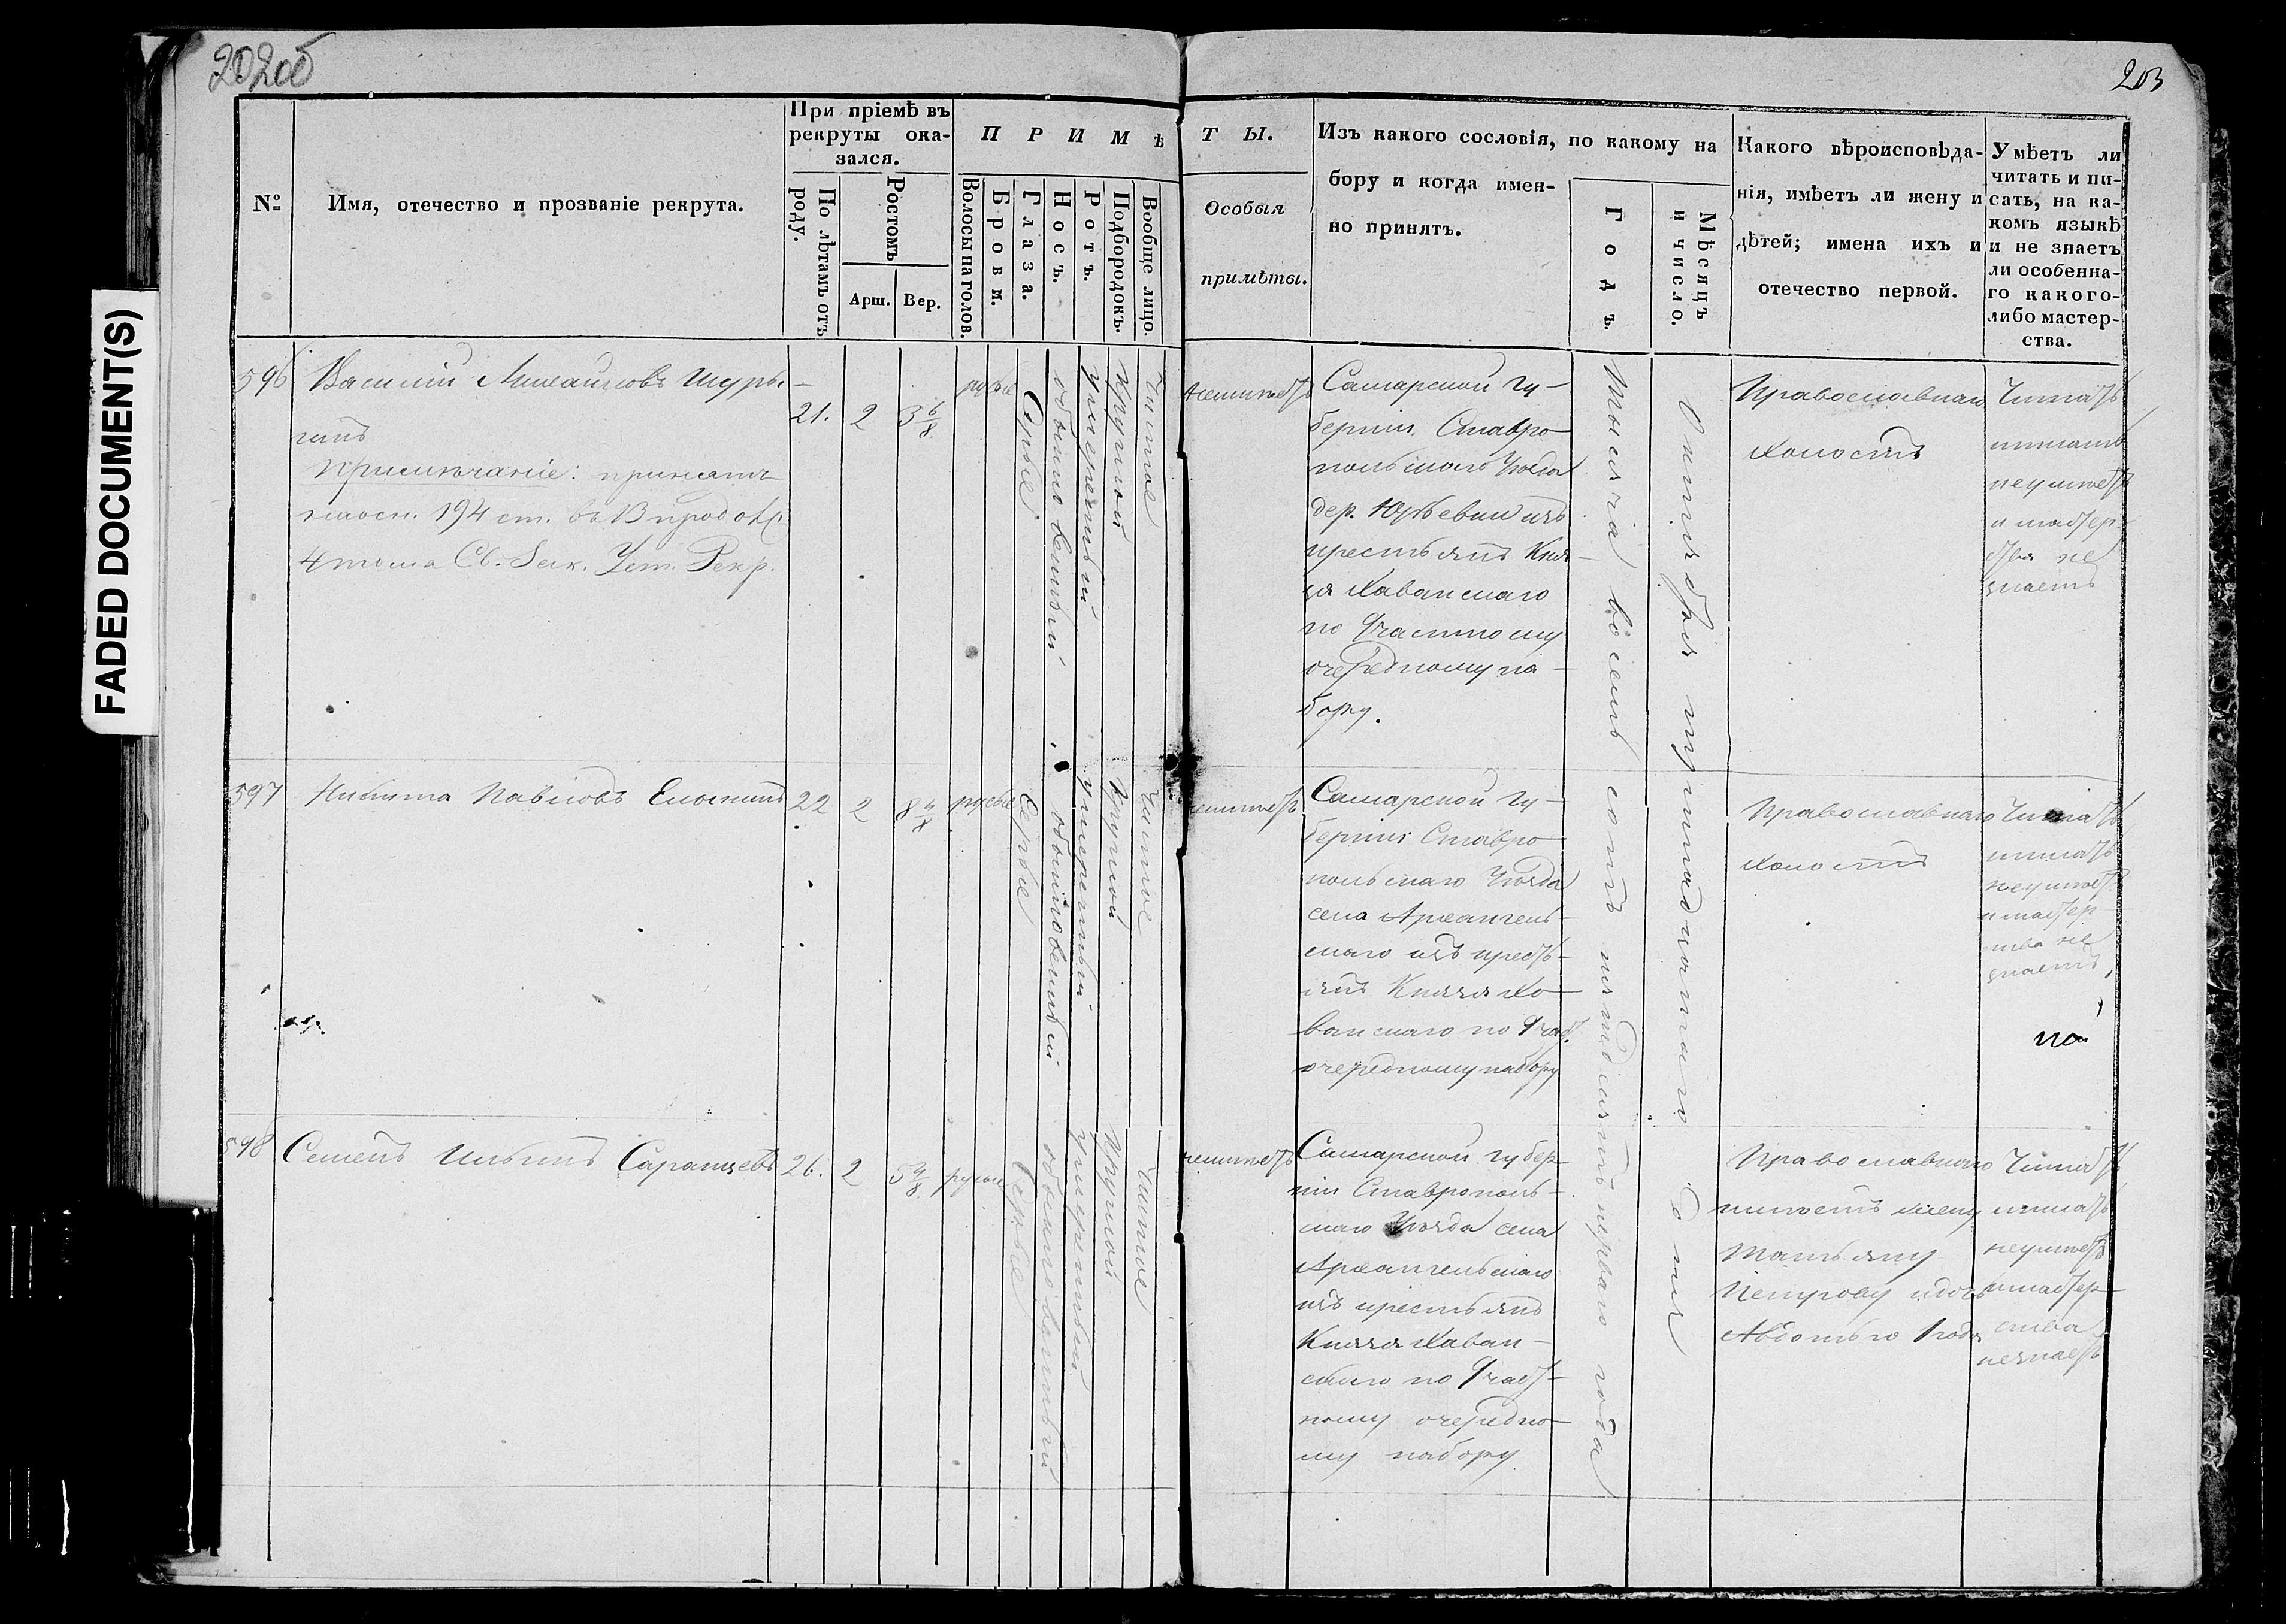 202об
203
FADED DOCUMENT(S)
№
Имя, отечество и прозваніе рекрута.
При пріемѣ въ
рекруты ока-
зался.
По лѣтамъ отъ
роду.
Ростомъ
Арш.
Вер.
ПРИМѢ
Волосы на голов.
Брови.
Глаза.
Носъ.
Ротъ.
Подбородокъ.
Вообще лицо.
ТЫ.
Особыя
примѣты.
Изъ какого сословія, по какому на
бору и когда имен-
но принятъ.
Годъ.
Мѣсяцъ
и число.
Какого вѣроисповѣда-
нія, имѣетъ ли жену и
дѣтей; имена ихъ и
отечество первой.
Умѣетъ ли
читать и пи-
сать, на ка-
комъ языкѣ
и не знаетъ
ли особенна-
го какого-
либо мастер-
ства.
596
Василій Михайловъ Шуры-
гинъ
Примѣчаніе: принятъ
194 ст. въ
4 тома Св. Зак. Уст. Рекр.
21.
2
3 6/8
русые
Серые
обыкновенный
умеренный
Круглой
Чистое
неимеетъ
Самарской Гу-
берніи Ставро
польскаго Уѣзда
дер. Юрьевки изъ
крестьянъ Кня-
зя Хаванскаго
по Частному
очередному на-
бору.
Тысяча восемь сотъ пятдесятъ перваго года
Октября тринадцатаго дня
Православнаго
холостъ
Читать
писать
неумѣетъ
и мастер-
ства не
знаетъ
597
Никита Павловъ Елькинъ
22
2
8 4/8
русые
Серые
обыкновенный
умеренный
Круглой
Чистое
неимеетъ
Самарской Гу-
берніи Ставро
польскаго Уѣзда
села Архангель-
скаго изъ кресть-
янъ Князя Хо-
ванскаго по Част.
очередному набору
Православнаго
холостъ
Читать
писать
неумѣетъ
и мастер-
ства не
знаетъ
598
Семенъ Ильинъ Саранцевъ
26.
2
5 4/8
русые
Серые
обыкновенный
умеренный
Круглой
Чистое
неимѣетъ
Самарской Губер-
ніи Ставрополь-
скаго Уѣзда села
Архангельскаго
изъ крестьянъ
Князя Хаван-
скаго по Част-
ному очередно-
му набору
Православнаго
имѣетъ жену
Татьяну
Петрову и дочь
Авдотью 1 года
Читать
писать
неумѣетъ
и мастер-
ства
незнаетъ